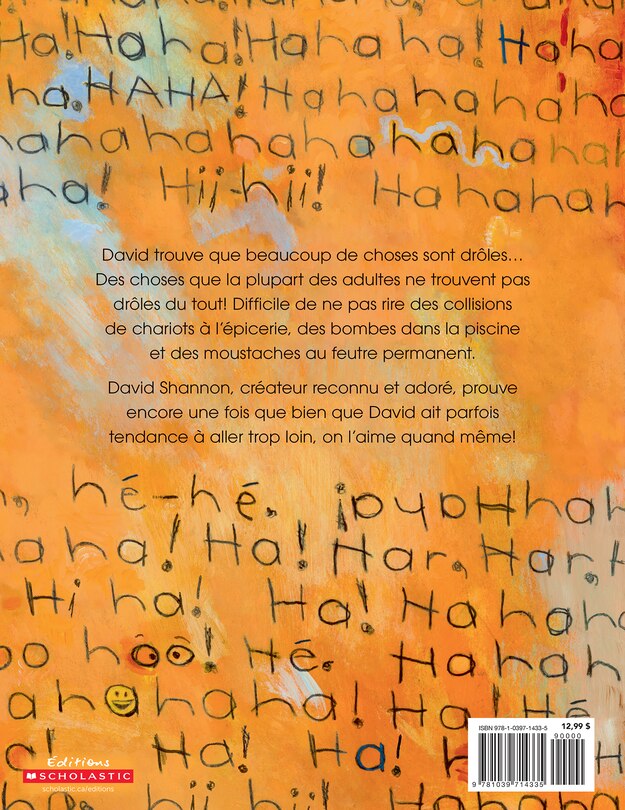 Ha! Haha! Hahaha! Haha
ha, HAHA! Hahahahaha
hahahahahahahahaha
aha! Hii-hii! Hahahah
David trouve que beaucoup de choses sont drôles…
Des choses que la plupart des adultes ne trouvent pas
drôles du tout! Difficile de ne pas rire des collisions
de chariots à l’épicerie, des bombes dans la piscine
et des moustaches au feutre permanent.
David Shannon, créateur reconnu et adoré, prouve
encore une fois que bien que David ait parfois
tendance à aller trop loin, on l’aime quand même!
hé-hé. ¡pupHhah
aha! Ha! Har, Har, H
Hi ha! Ha! Hahaha
oo hoô! Hé. Hahah
ahahahaha! Ha! Hé
! Ha! Ha! H
ISBN 978-1-0397-1433-5 12,99 $
90000
9 781039 714335
Éditions
SCHOLASTIC
scholastic.ca/editions